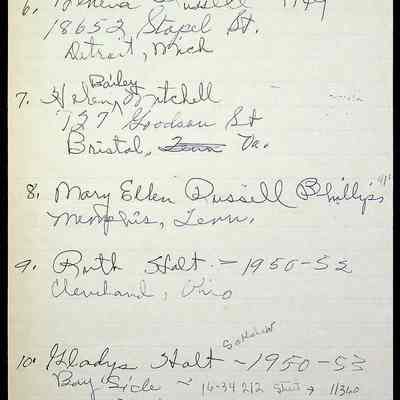 6. Geneva Russell
18652 Stapel St.
Detroit, Mich
Bailey
7. Helen ^ Mitchell
127 Goodson St
Bristol, Tenn Va.
8. Mary Ellen Russell Phillips
Memphis, Tenn.
9. Ruth Holt - 1950-53
Cleveland, Ohio
10. Gladys Holt ~ 1950-53
Bay Side ~ 16-34 212 Street → 11360